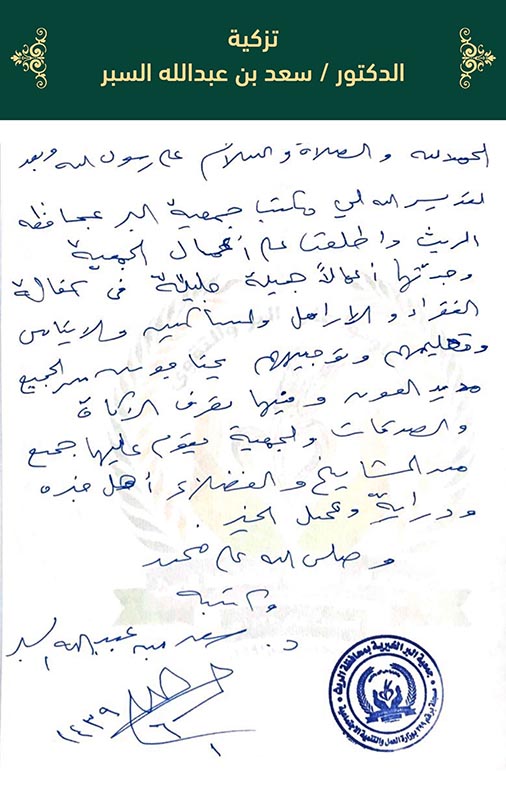 تزكية
الدكتور / سعد بن عبدالله السبر
الحمد لله والصلاة والسلام على رسول الله وبعد
لقد يسر الله لي مكتب جمعية البر بمحافظة
الريث واطلعنا على أعمال الجمعية
وجدتها أعمالاً جميلة جليلة في كفالة
الفقراء والأرامل والمساكين والايتام
وتعليمهم وتوجيههم يحتاجون من الجميع
مد يد العون وفيها تصرف الزكاة
والصدقات والجمعية يقوم عليها جمع
من المشايخ والفضلاء أهل خبره
ودراية وعمل الخير.
وصلى الله على محمد
وكتبه
د. سعد بن عبدالله السبر
١٤٣٩
جمعية البر الخيرية بمحافظة الريث